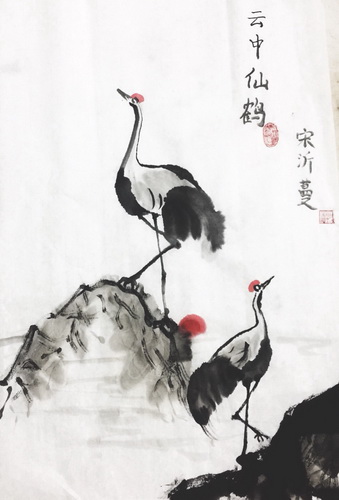 云中仙鹤
宋沂蔓